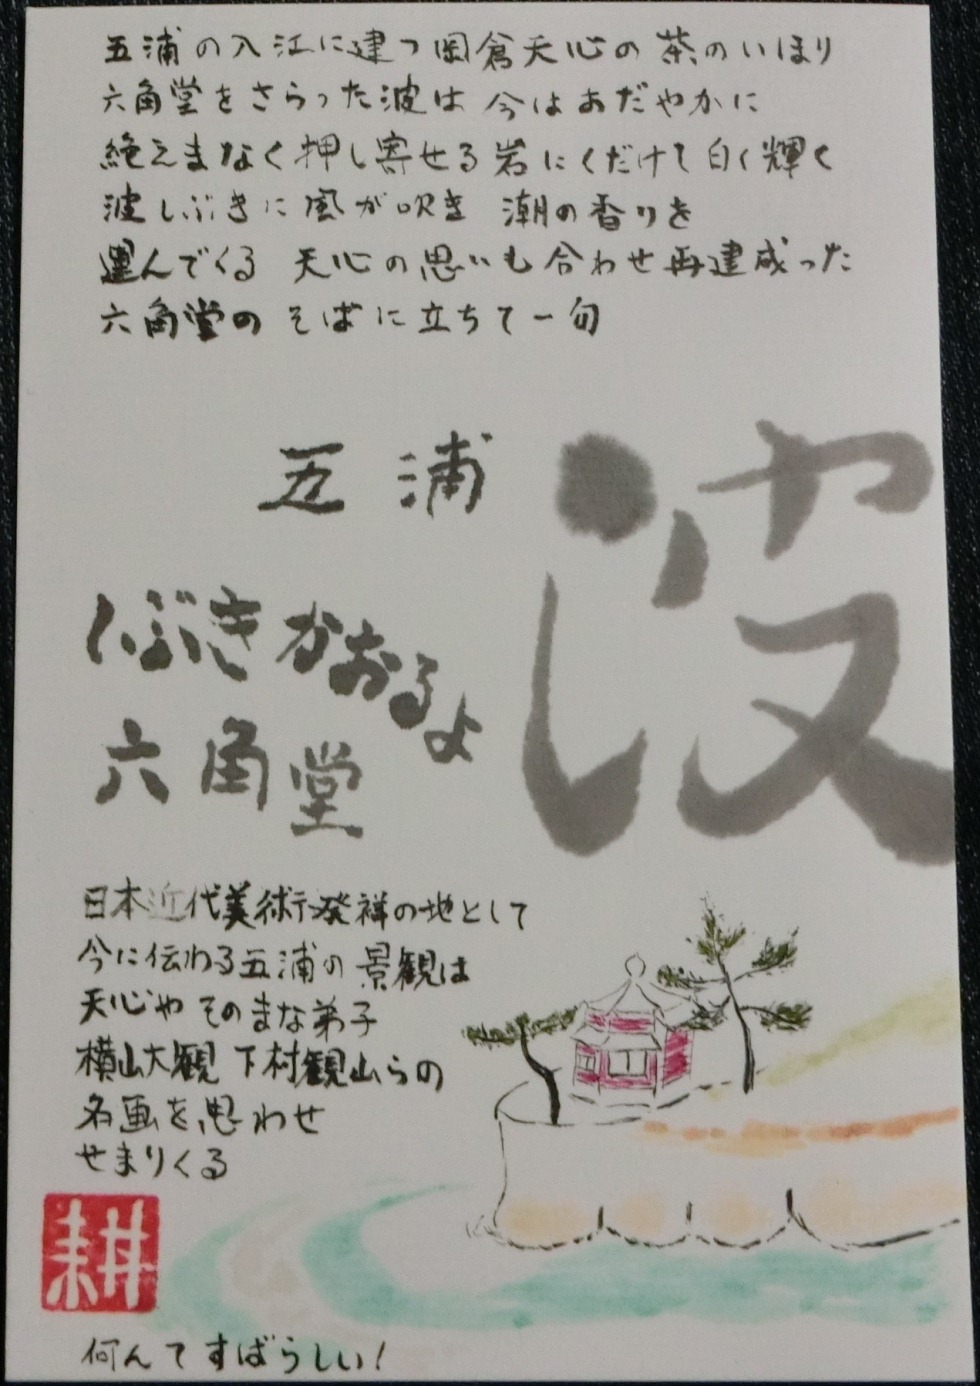 五浦の入江に建つ岡倉天心の茶のいほり
六角堂をさらった波は 今はおだやかに
絶えまなく押し寄せる岩にくだけて白く輝く
波しぶきに風が吹き 潮の香りを
運んでくる 天心の思いも合わせ再建成った
六角堂の そばに立ちて一句
五浦
波
しぶきかおるよ
六角堂
日本近代美術発祥の地として
今に伝わる五浦の景観は
天心やそのまな弟子
横山大観 下村観山らの
名画を思わせ
せまりくる
耕
何んてすばらしい!